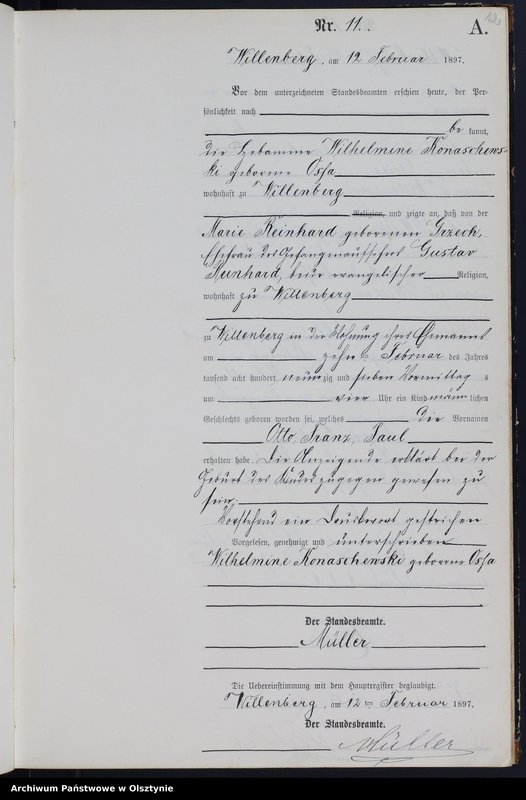 12
Nr. 11.
A.
Willenberg, am 12 Februar 1897.
Vor dem unterzeichneten Standesbeamten erschien heute, der Per-
sönlichkeit nach
be kannt,
die Hebamme Wilhelmine Konaschews-
ki geborene Ossa
wohnhaft zu Willenberg
Religion, und zeigte an, daß von der
Marie Reinhard geborenen Grzech,
Ehefrau des Gefangenaufsehers Gustav
Reinhard, beide evangelischer Religion,
wohnhaft zu Willenberg
zu Willenberg in der Wohnung ihres Ehemanns
am zehn ten Februar des Jahres
tausend acht hundert neunzig und sieben Vormittag s
um vier Uhr ein Kind männ lichen
Geschlechts geboren worden sei, welches die Vornamen
Otto, Franz, Paul
erhalten habe. Die Anzeigende erklärt bei der
Geburt des Kindes zugegen gewesen zu
sein.
Vorstehend ein Druckwort gestrichen
Vorgelesen, genehmigt und unterschrieben
Wilhelmine Konaschewski geborene Ossa
Der Standesbeamte.
Müller
Die Uebereinstimmung mit dem Hauptregister beglaubigt.
Willenberg, am 12 ten Februar 1897.
Der Standesbeamte.
Müller
Archiwum Państwowe w Olsztynie